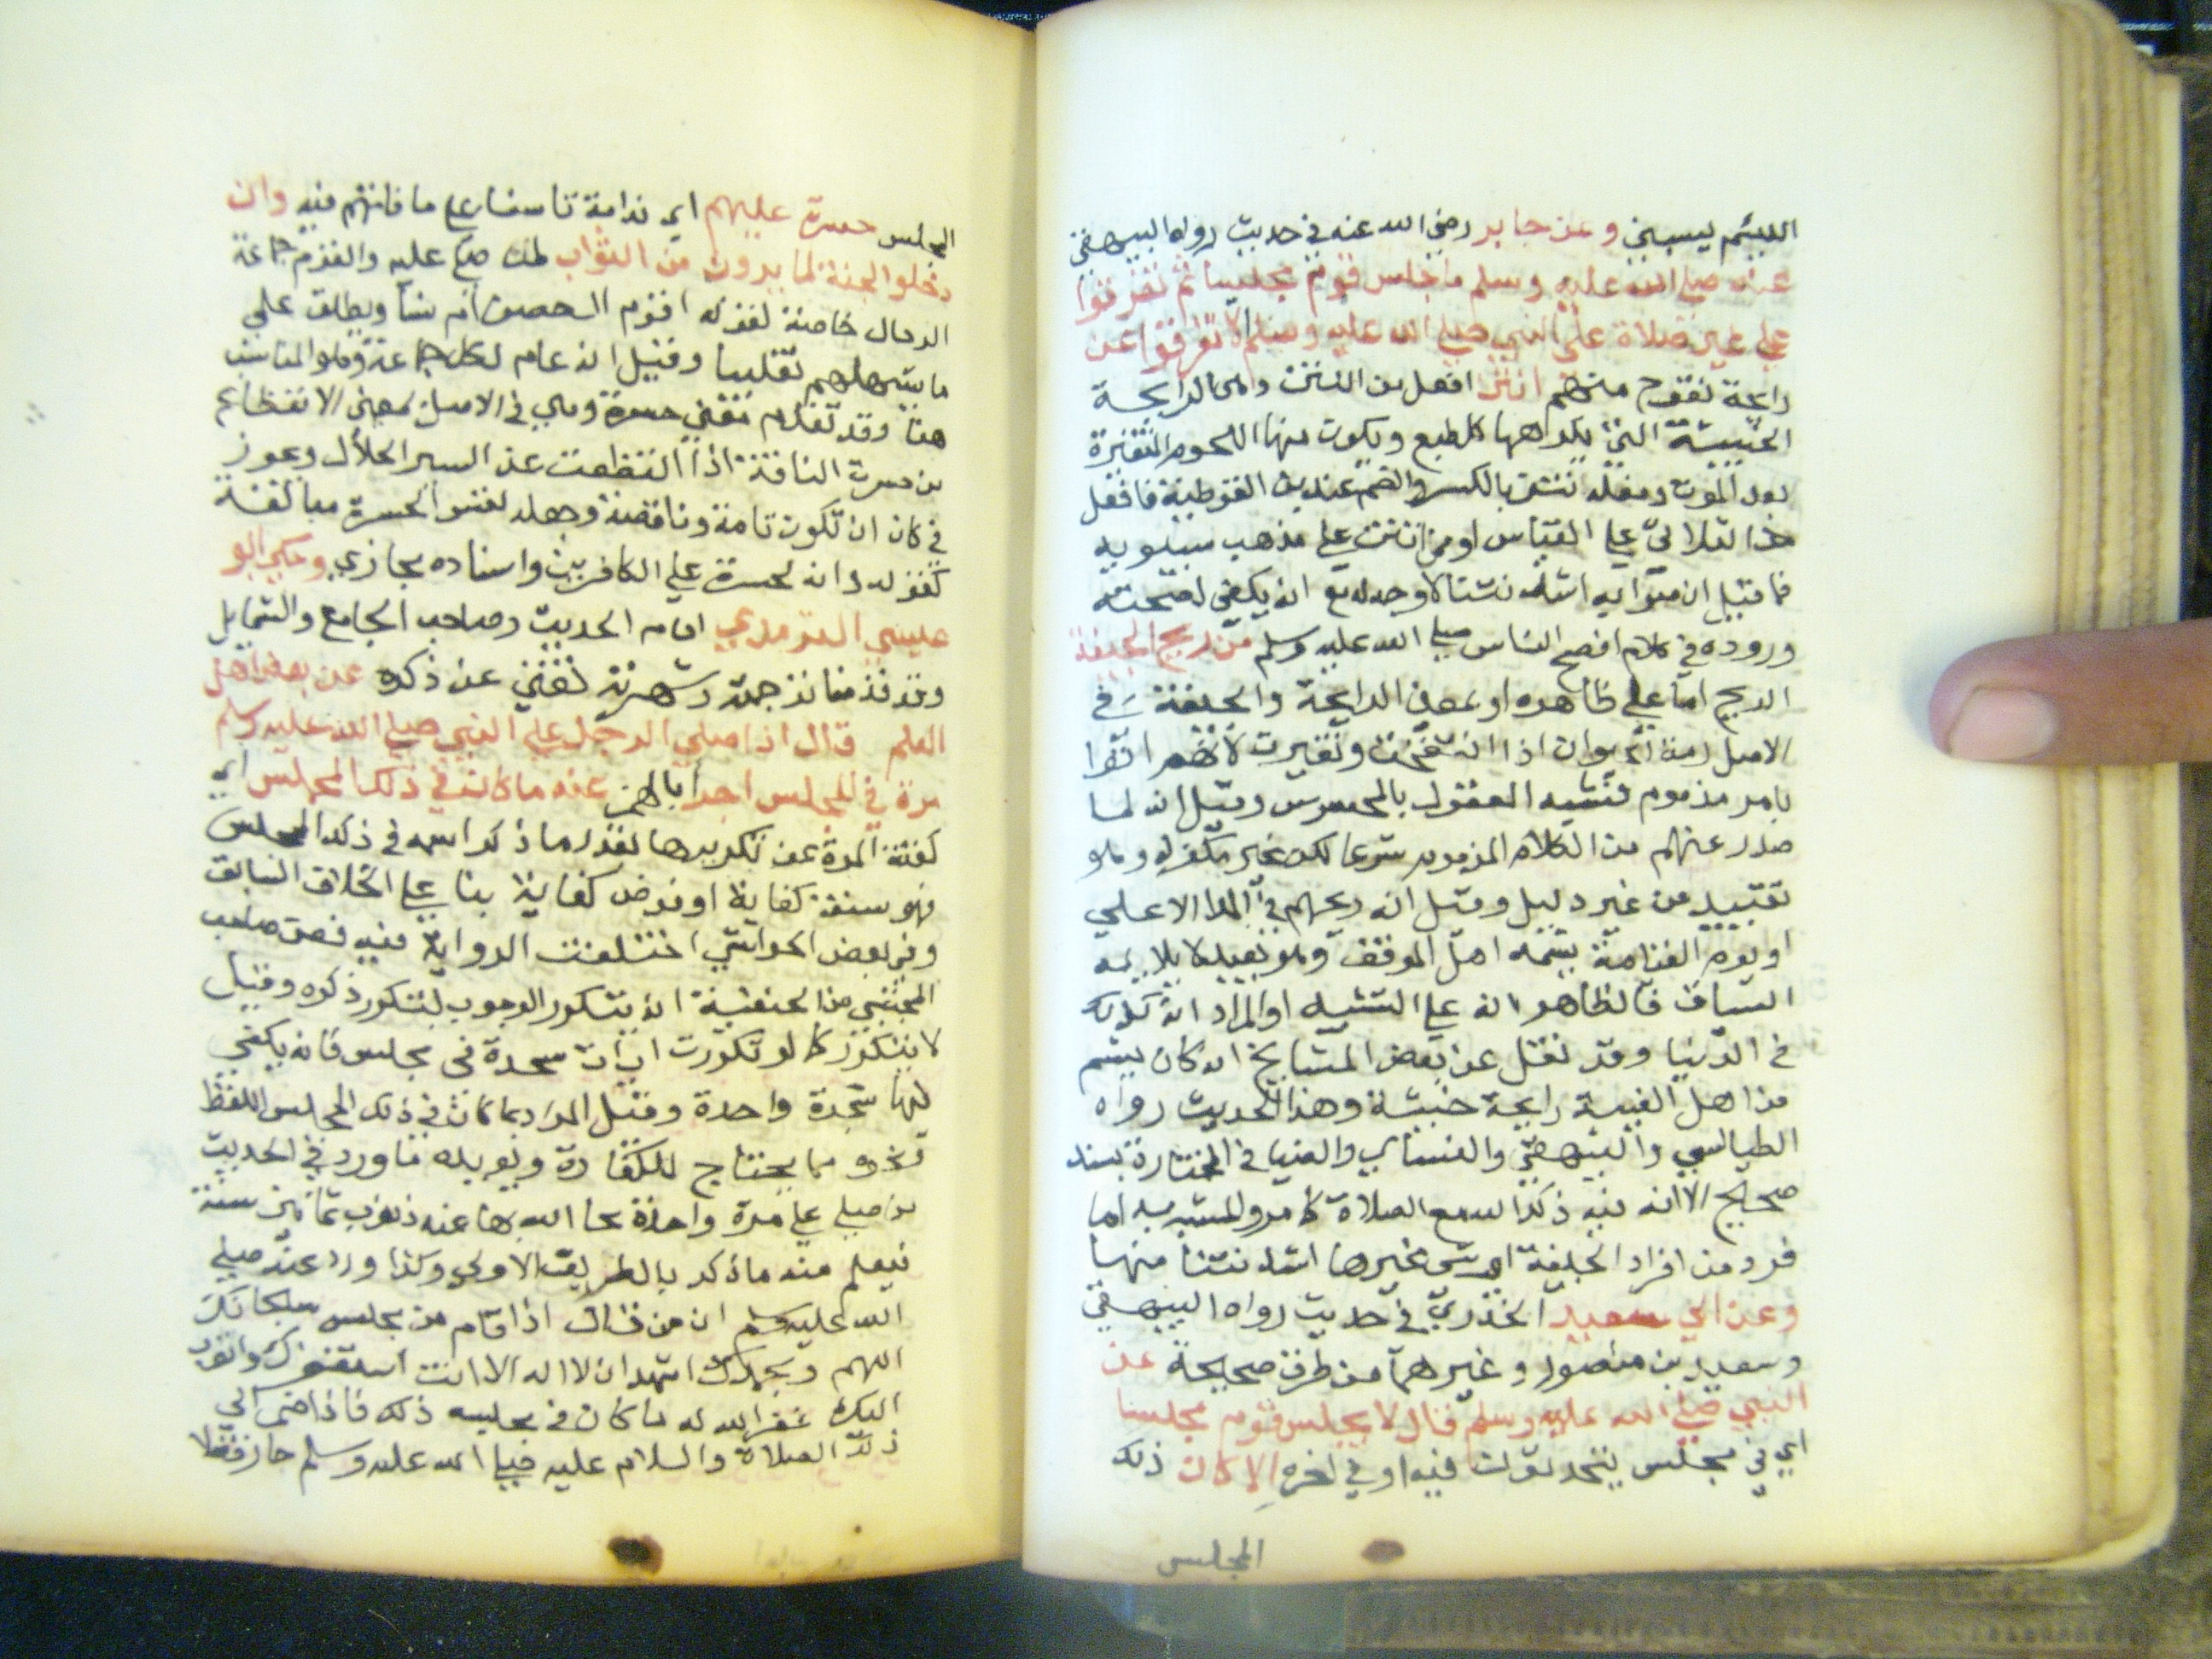 اللئيم ليسبني وعن جابر رضي الله عنه في حديث رواه البيهقي
عنه صلى الله عليه وسلم ما جلس قوم مجلسا ثم تفرقوا
على غير صلاة على النبي صلى الله عليه وسلم الا تفرقوا عن
رايحة تفوح منهم انتن افعل من النتن وهي الرايحة
الخبيثة التي يكرهها كل طبع ويكون منها اللحوم المتغيرة
بعد الموت وفعله نتن بالكسر والضم عند بن القوطية فافعل
هذا الثلاثي على القياس او من انتن على مذهب سيبويه
فما قيل ان صوابه اشد نتنا لا وجه له مع انه يكفي لصحته
وروده في كلام افصح الناس صلى الله عليه وسلم من ريح الجيفة
الريح اما على ظاهره او بمعنى الرايحة والجيفة في
الاصل رمة الحيوان اذا انتفخت وتغيرت لانهم اتوا
بامر مذموم فشبه المعقول بالمحسوس وقيل انه لما
صدر عنهم من الكلام المذموم شرعا لكن غير مكفر وهو
تقييد من غير دليل وقيل انه ريحهم في الملا الاعلى
او يوم القيامة يشمه اهل الموقف وهو بعيد لا يلايمه
السياق فالظاهر انه على التشبيه او المراد انه كذلك
في الدنيا وقد نقل عن بعض المشايخ انه كان يشم
من اهل الغيبة رايحة خبيثة وهذا الحديث رواه
الطيالسي والبيهقي والنساي والضيا في المختارة بسند
صحيح الا انه فيه ذكر الله مع الصلاة كما مر والمشبه به اما
فرد من افراد الجيفة اي من غيرها اشد نتنا منها
وعن ابي سعيد الخدري في حديث رواه البيهقي
وسعيد بن منصور وغيرهما من طرق صحيحة عن
النبي صلى الله عليه وسلم قال لا يجلس قوم مجلسا
اي في مجلس يتحدثون فيه او في اخره الا كان ذلك
المجلس
المجلس حسرة عليهم اي ندامة تاسفا على ما فاتهم فيه وان
دخلوا الجنة لما يرون من الثواب لمن صلى عليه والقوم جماعة
الرجال خاصة لقوله اقوم ال حصن ام نسا ويطلق على
ما يشملهم تغليبا وقيل انه عام لكل جماعة وهو المناسب
هنا وقد تقدم معنى حسرة وهي في الاصل بمعنى الانقطاع
من حسرت الناقة اذا انقطعت عن السير الحلال ويجوز
في كان ان تكون تامة وناقصة وجعله نفس الحسرة مبالغة
كقوله وانه لحسرة على الكافرين واسناده مجازي وحكى ابو
عيسى الترمذي امام الحديث وصاحب الجامع والشمايل
وقد قدمنا ترجمته وشهرته تغني عن ذكره عن بعض اهل
العلم قال اذا صلى الرجل على النبي صلى الله عليه وسلم
مرة في المجلس اجزا بالهمز عنه ما كان في ذلك المجلس اي
كفته المرة عن تكريرها بقدر ما ذكر اسمه في ذلك المجلس
فهو سنة كفاية او فرض كفاية بنا على الخلاف السابق
وفي بعض الحواشي اختلفت الرواية فيه فعن صاحب
المجتبى من الحنفية انه يتكرر الوجوب لتكرر ذكره وقيل
لا يتكرر كما لو تكررت ايات سجدة في مجلس فانه يكفي
لها سجدة واحدة وقيل المراد بما كان في ذلك المجلس اللفظ
ونحوه مما يحتاج للكفارة ويؤيده ما ورد في الحديث
من صلى علي مرة واحدة محا الله بها عنه ذنوب ثمانين سنة
فيعلم منه ما ذكر بالطريق الاولى وكذا ورد عنه صلى
الله عليه وسلم ان من قال اذا قام من مجلس سبحانك
اللهم وبحمدك اشهد ان لا اله الا انت استغفرك واتوب
اليك غفر الله له ما كان في مجلسه ذلك فاذا ضم الى
ذلك الصلاة والسلام عليه صلى الله عليه وسلم حاز فضلا